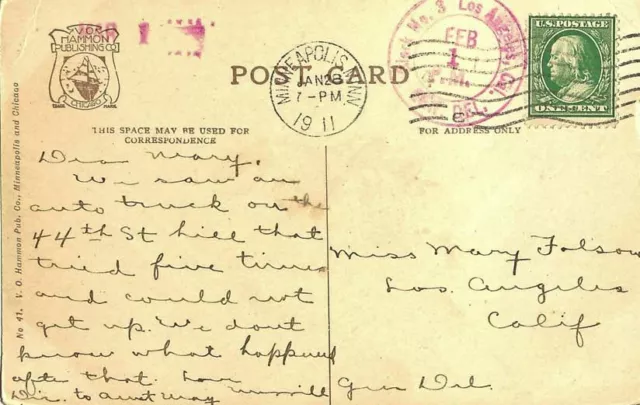 V.O.
HAMMON
PUBLISHING CO
CHICAGO
TRADE MARK
1
POST CARD
MINNEAPOLIS, MINN.
JAN 28
7-PM
1911
No. 3 Los Angeles, Cal.
FEB
1
P.M.
DEL.
U.S. POSTAGE
ONE CENT
THIS SPACE MAY BE USED FOR
CORRESPONDENCE
FOR ADDRESS ONLY
No 41. V. O. Hammon Pub. Co., Minneapolis and Chicago
Dear Mary,
We saw an
auto truck on the
44th St hill that
tried five times
and could not
get up. We dont
know what happened
after that. Love
to Aunt May
Merrill
Miss Mary Folsom
Los Angeles
Calif
Gen Del.